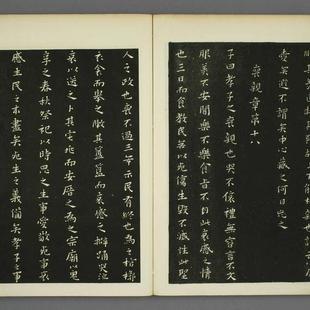 愛矣遐不謂矣中心藏之何日忘之
喪親章第十八
子曰孝子之喪親也哭不偯禮無容言不文
服美不安聞樂不樂食旨不甘此哀慼之情
也三日而食教民無以死傷生毀不滅性此聖
人之政也喪不過三年示民有終也為之棺槨
衣衾而舉之陳其簠簋而哀慼之擗踊哭泣
哀以送之卜其宅兆而安厝之為之宗廟以鬼
享之春秋祭祀以時思之生事愛敬死事哀
慼生民之本盡矣死生之義備矣孝子之事